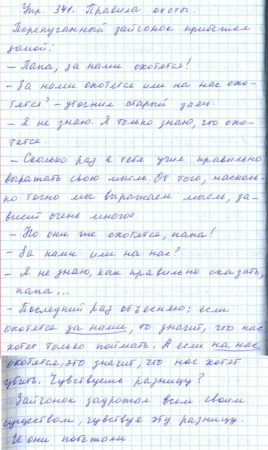 Упр. 341. Правила охоты.
Перепуганный зайчонок прибежал
домой:
– Папа, за нами охотятся!
– За нами охотятся или на нас охо-
тятся? – уточнил старый заяц.
– Я не знаю. Я только знаю, что охо-
тятся.
– Сколько раз я тебя учил правильно
выражать свою мысль. От того, насколь-
ко точно мы выражаем мысль, за-
висит очень многое.
– Но они же охотятся, папа!
– За нами или на нас?
– Я не знаю, как правильно сказать,
папа...
– Последний раз объясняю: если
охотятся за нами, то значит, что нас
хотят только поймать. А если на нас
охотятся, это значит, что нас хотят
убить. Чувствуешь разницу?
Зайчонок задрожал всем своим
существом, чувствуя эту разницу.
И они побежали.